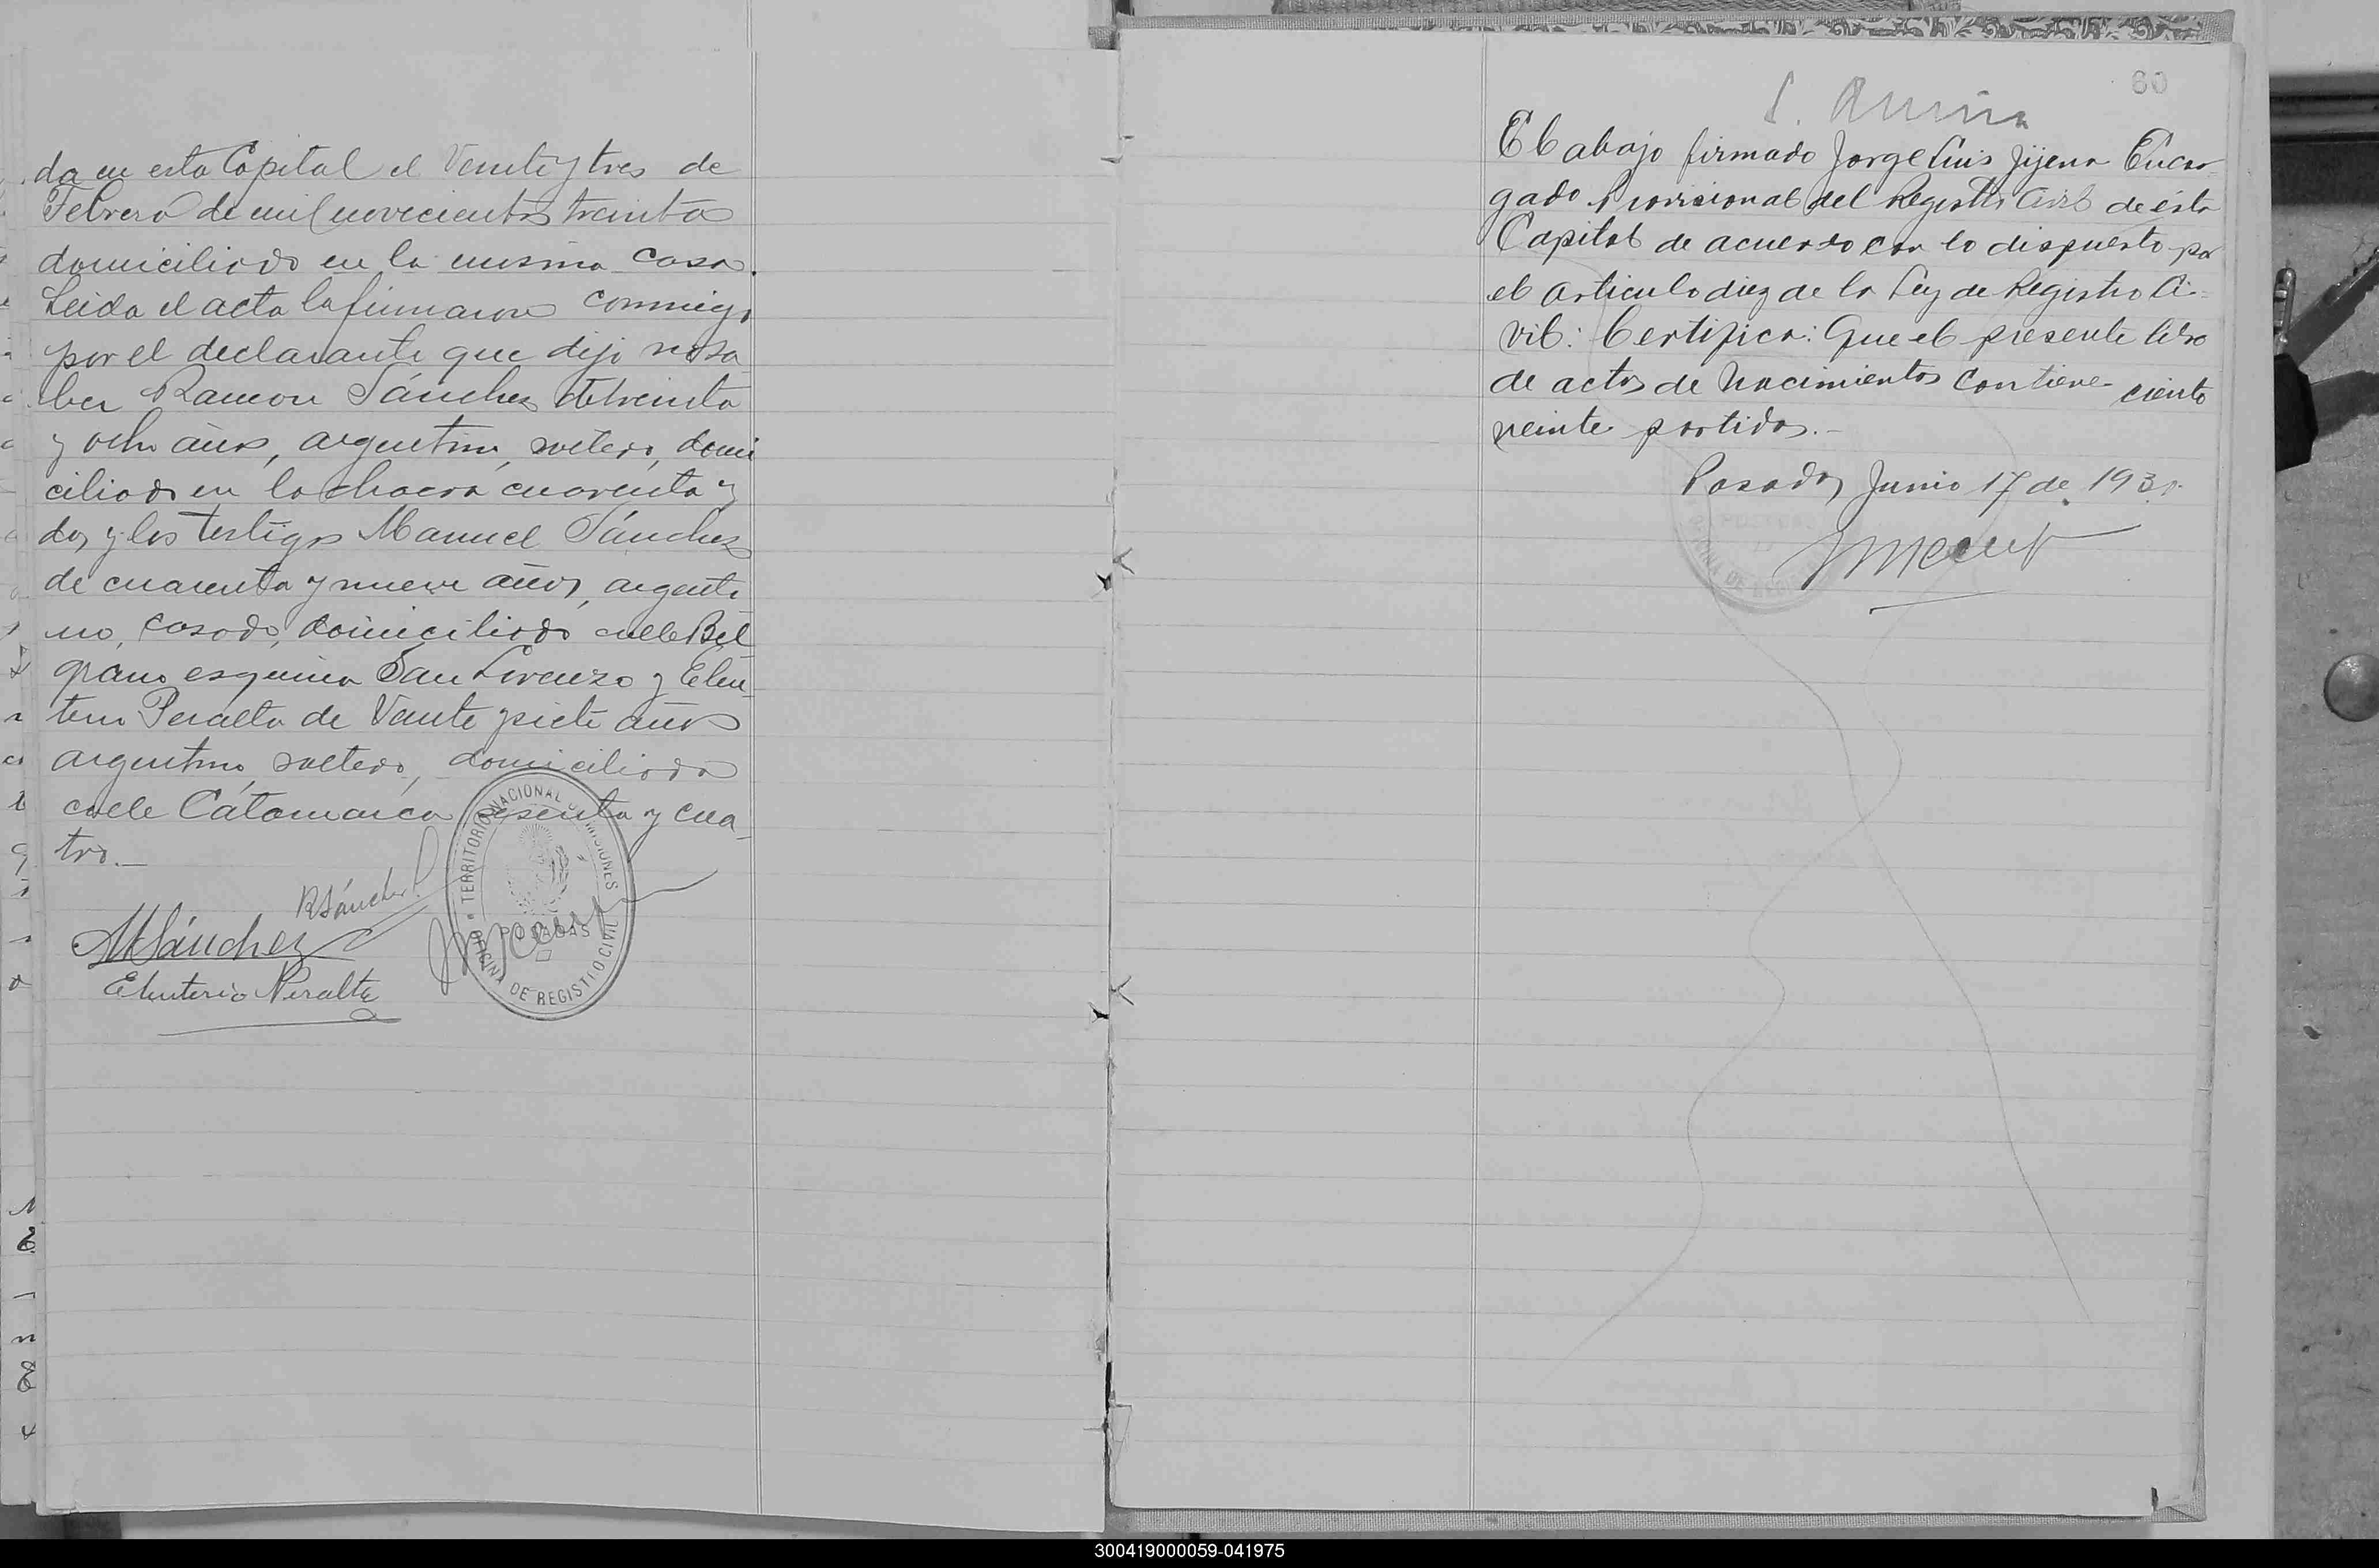 da en esta Capital el Veinte y tres de
Febrero de mil novecientos treinta
domiciliado en la misma casa.
Leida el acta la firmaron conmigo
por el declarante que dijo no sa
ber Ramon Sánchez de treinta
y ocho años, argentino, soltero, domi
ciliado en la chacra cuarenta y
dos y los testigos Manuel Sánchez
de cuarenta y nueve años, argenti
no, casado, domiciliado calle Bel
grano esquina San Lorenzo y Eleu-
terio Peralta de Veinte y siete años
argentino, soltero, domiciliado
calle Catamarca sesenta y cua-
tro.—
R Sánchez
M Sánchez
Eleuterio Peralta
TERRITORIO NACIONAL DE MISIONES
POSADAS
OFICINA DE REGISTRO CIVIL
60
El abajo firmado Jorge Luis Jijena Encar-
gado Provisional del Registro Civil de ésta
Capital de acuerdo con lo dispuesto por
el articulo diez de la Ley de Registro Ci-
vil: Certifica: Que el presente libro
de actas de Nacimientos contiene ciento
veinte partidas.—
Posadas Junio 17 de 193
POSADAS
300419000059-041975